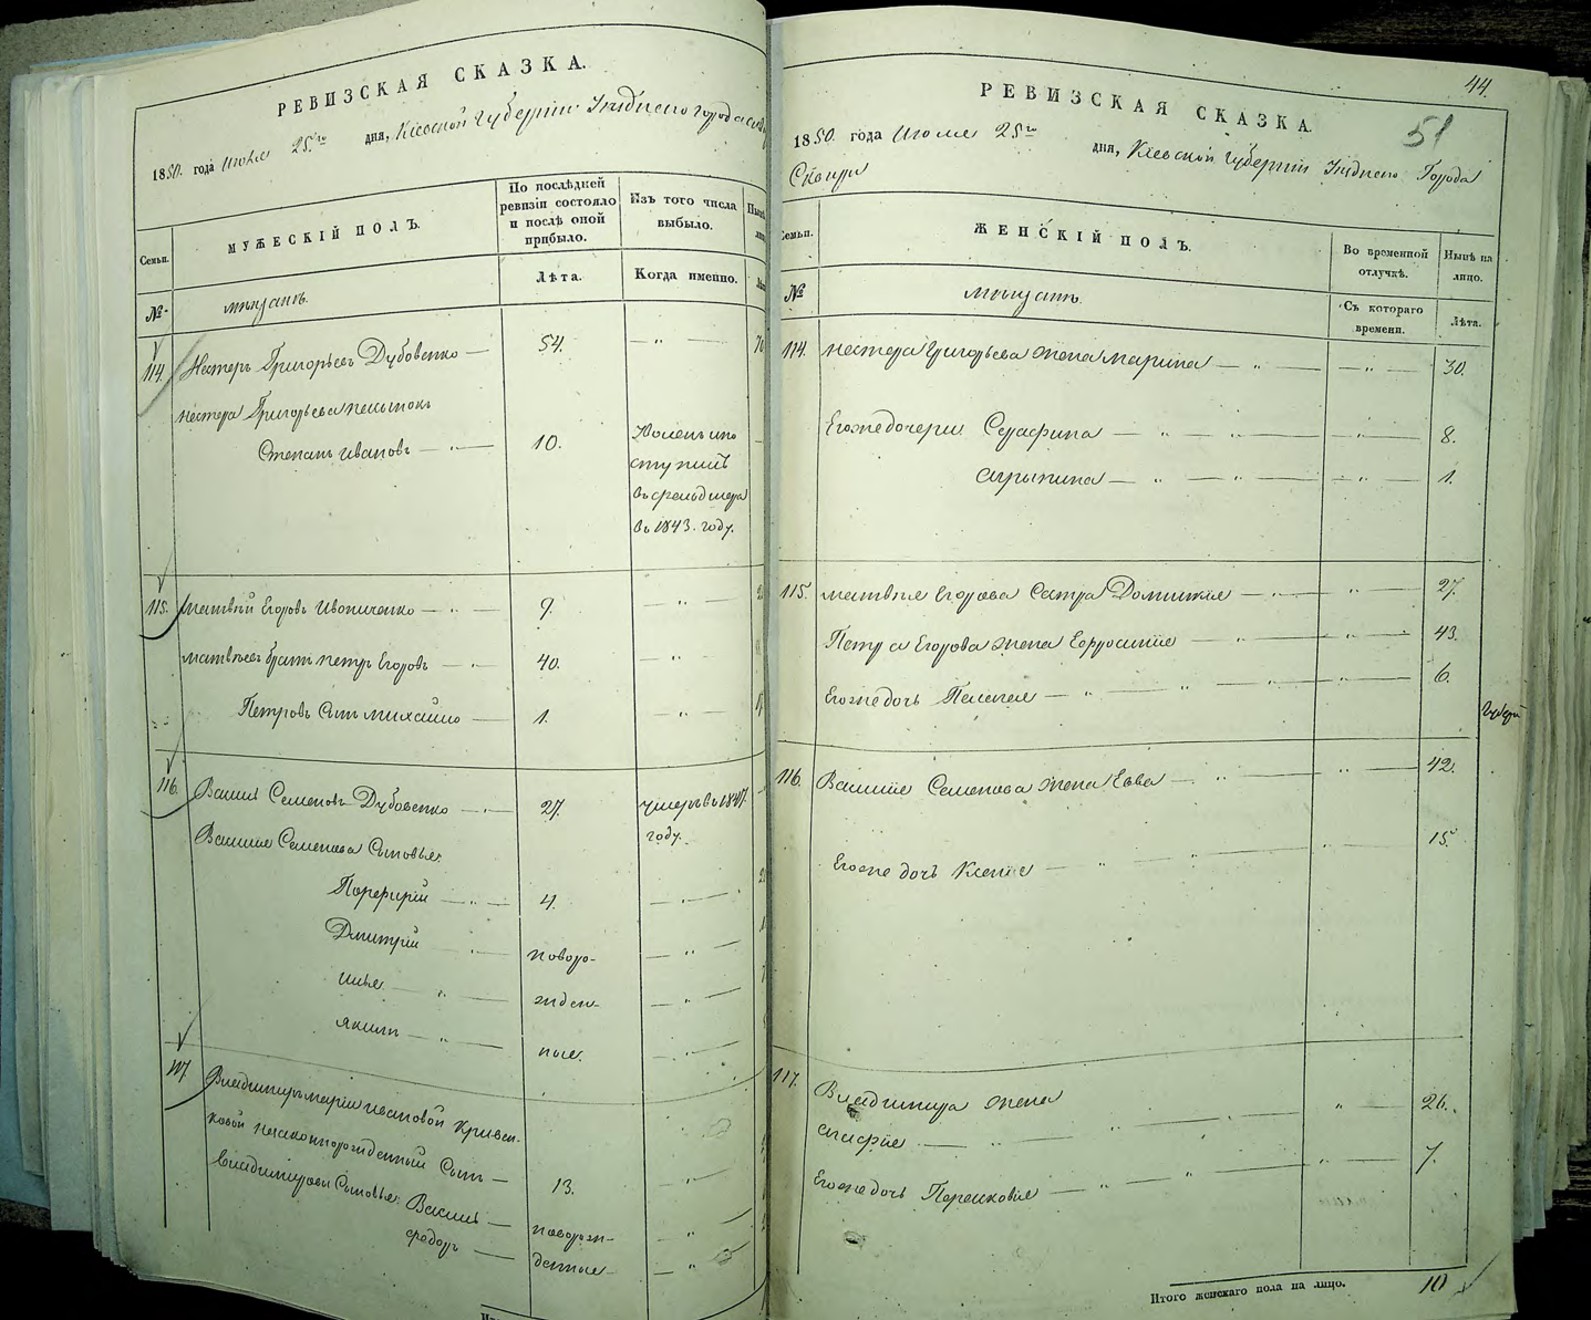 РЕВИЗСКАЯ СКАЗКА.
1850. года Июня 25го дня, Кіевской Губерніи Уѣзднаго города
Семьи.
МУЖЕСКІЙ ПОЛЪ.
По послѣдней ревизіи состояло и послѣ оной прибыло.
Изъ того числа выбыло.
№
мѣщанъ.
Лѣта.
Когда именно.
114. Нестеръ Григорьевъ Дубовенко — 54. — " — 70
Нестера Григорьева племянникъ
Степанъ Ивановъ — " — 10.
въ 1843. году.
115. Матвѣй Егоровъ — " — 9. — " —
Матвѣевъ братъ Петръ Егоровъ — " — 40. — " —
Петровъ Сынъ Михайло — 1. — " —
116. Василій Семеновъ Дубовенко — " — 27. умеръ въ 1847.
году.
Василія Семенова Сыновья:
Порфирій — " — 4. — " —
Дмитрій — " — новоро- — " —
Илья — " — жден- — " —
Якимъ — " — ные. — " —
117. Владимиръ Маріи Ивановой Кривен-
ковой незаконнорожденный Сынъ — 13. — " —
Владимировы Сыновья: Василій — новорож- — " —
Федоръ — денные — " —
44.
51
РЕВИЗСКАЯ СКАЗКА.
1850. года Июня 25го дня, Кіевской Губерніи Уѣзднаго Города
Сквиры
Семьи.
ЖЕНСКІЙ ПОЛЪ.
Во временной отлучкѣ.
Нынѣ на лицо.
№
мѣщанъ.
Съ котораго времени.
Лѣта.
114. Нестера Григорьева жена Марина — " — — " — 30.
Егоже дочери Серафина — " — " — " — 8.
Ирынина — " — " — — " — 1.
115. Матвѣя Егорова Сестра Домникія — " — " — 27.
Петра Егорова жена Евфросинія — " — " — 43.
Егоже дочь Пелагея — " — " — " — 6.
116. Василія Семенова жена Евва — " — " — 42.
Егоже дочь Ксенія — " — " — " — 15.
117. Владимира жена
Агафія — " — " — " — " — 26.
Егоже дочь Парасковія — " — " — " — 7.
Итого женскаго пола на лицо. 10